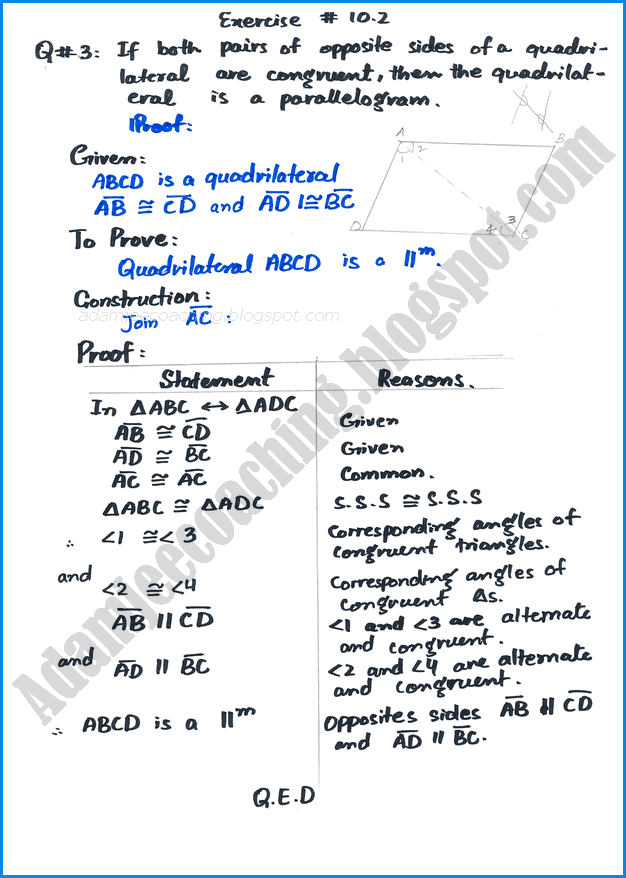 Exercise # 10.2
Q#3: If both pairs of opposite sides of a quadri-
lateral are congruent, then the quadrilat-
eral is a parallelogram.
Proof:
Given:
ABCD is a quadrilateral
A̅B̅ ≅ C̅D̅ and A̅D̅ ≅ B̅C̅
A
B
1
2
D
4
3
C
To Prove:
Quadrilateral ABCD is a ||ᵐ.
Construction:
adamjeecoaching.blogspot.com
Join A̅C̅ :
Proof:
Statement Reasons.
In ΔABC ↔ ΔADC
A̅B̅ ≅ C̅D̅ Given
A̅D̅ ≅ B̅C̅ Given
A̅C̅ ≅ A̅C̅ Common.
ΔABC ≅ ΔADC S.S.S ≅ S.S.S
∴ <1 ≅ < 3 Corresponding angles of
congruent triangles.
and <2 ≅ <4 Corresponding angles of
congruent Δs.
A̅B̅ || C̅D̅ <1 and <3 are alternate
and congruent.
and A̅D̅ || B̅C̅ <2 and <4 are alternate
and congruent.
∴ ABCD is a ||ᵐ Opposites sides A̅B̅ || C̅D̅
and A̅D̅ || B̅C̅.
Q.E.D
Adamjeecoaching.blogspot.com